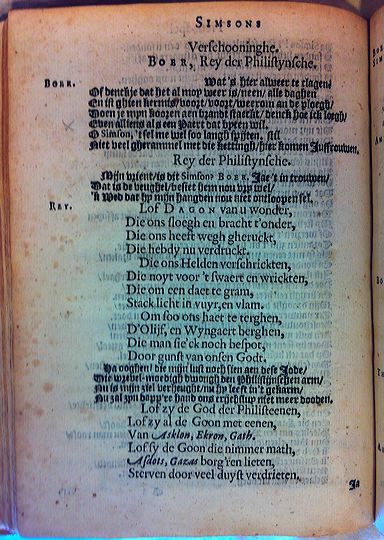 SIMSONS
Verschooninghe.
BOER, Rey der Philistynsche.
BOER. Wat's hier alweer te clagen/
Of denckje dat het al moy weer is/neen/ alle daghen
En ist ghien kermis/voozt/voozt/weerom an de ploegh/
Doen je myn koozen aen brandt staerkt/ denck hoe ick loegh/
Even alliens als een Paert dat hyeen wil.
O Simson/ t sel me wel soo langh spyten. stil
Niet veel gherammel met die kettingh/hier komen Juffrouwen.
Rey der Philistynsche.
Myn vrient/is dit Simson? BOER. Jae't in trouwen/
Dat is de veughel/bestet hem nou vry wel/
'k Wed dat hy mijn hangden nou niet ontloopen sel.
REY. Lof DAGON van u wonder,
Die ons sloegh en bracht t'onder,
Die ons heeft wegh gheruckt,
Die hebdy nu verdruckt.
Die ons Helden verschrickten,
Die noyt voor 't swaert en wrickten,
Die om een daet te gram,
Stack licht in vuyr, en vlam.
Om soo ons haet te terghen,
D'Olijf, en Wyngaert berghen,
Die man sie'ck noch bespot,
Door gunst van onsen Godt.
Ha ooghen/ die mijn lust noch sien aen dese Jode/
Die wzevel-moedigh dwongh den Philistijnschen arm/
Nu is mijn ziel verheught/nu hy leeft in 't gekarm/
Nu zal zyn dapp're hand ons erghestuy niet meer dooden.
Lof zy de God der Philisteenen,
Lof zy al de Goon met eenen,
Van Asklon, Ekron, Gath.
Lof sy de Goon die nimmer math,
Asdots, Gazas borg'ren lieten,
Sterven door veel duyst verdrieten,
Ja